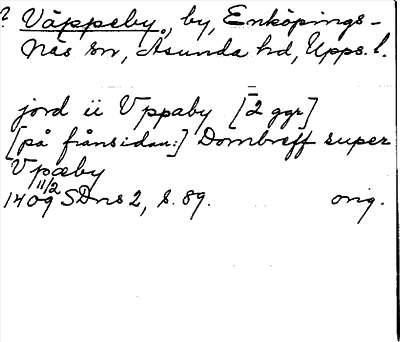 ? Väppeby, by, Enköpings-
Näs sn, Åsunda hd, Upps. l.
jord ii Vppaby [2 ggr]
[på frånsidan:] Dombreff super
Vpæby
14 11/2 09 SDns 2, s. 89. orig.